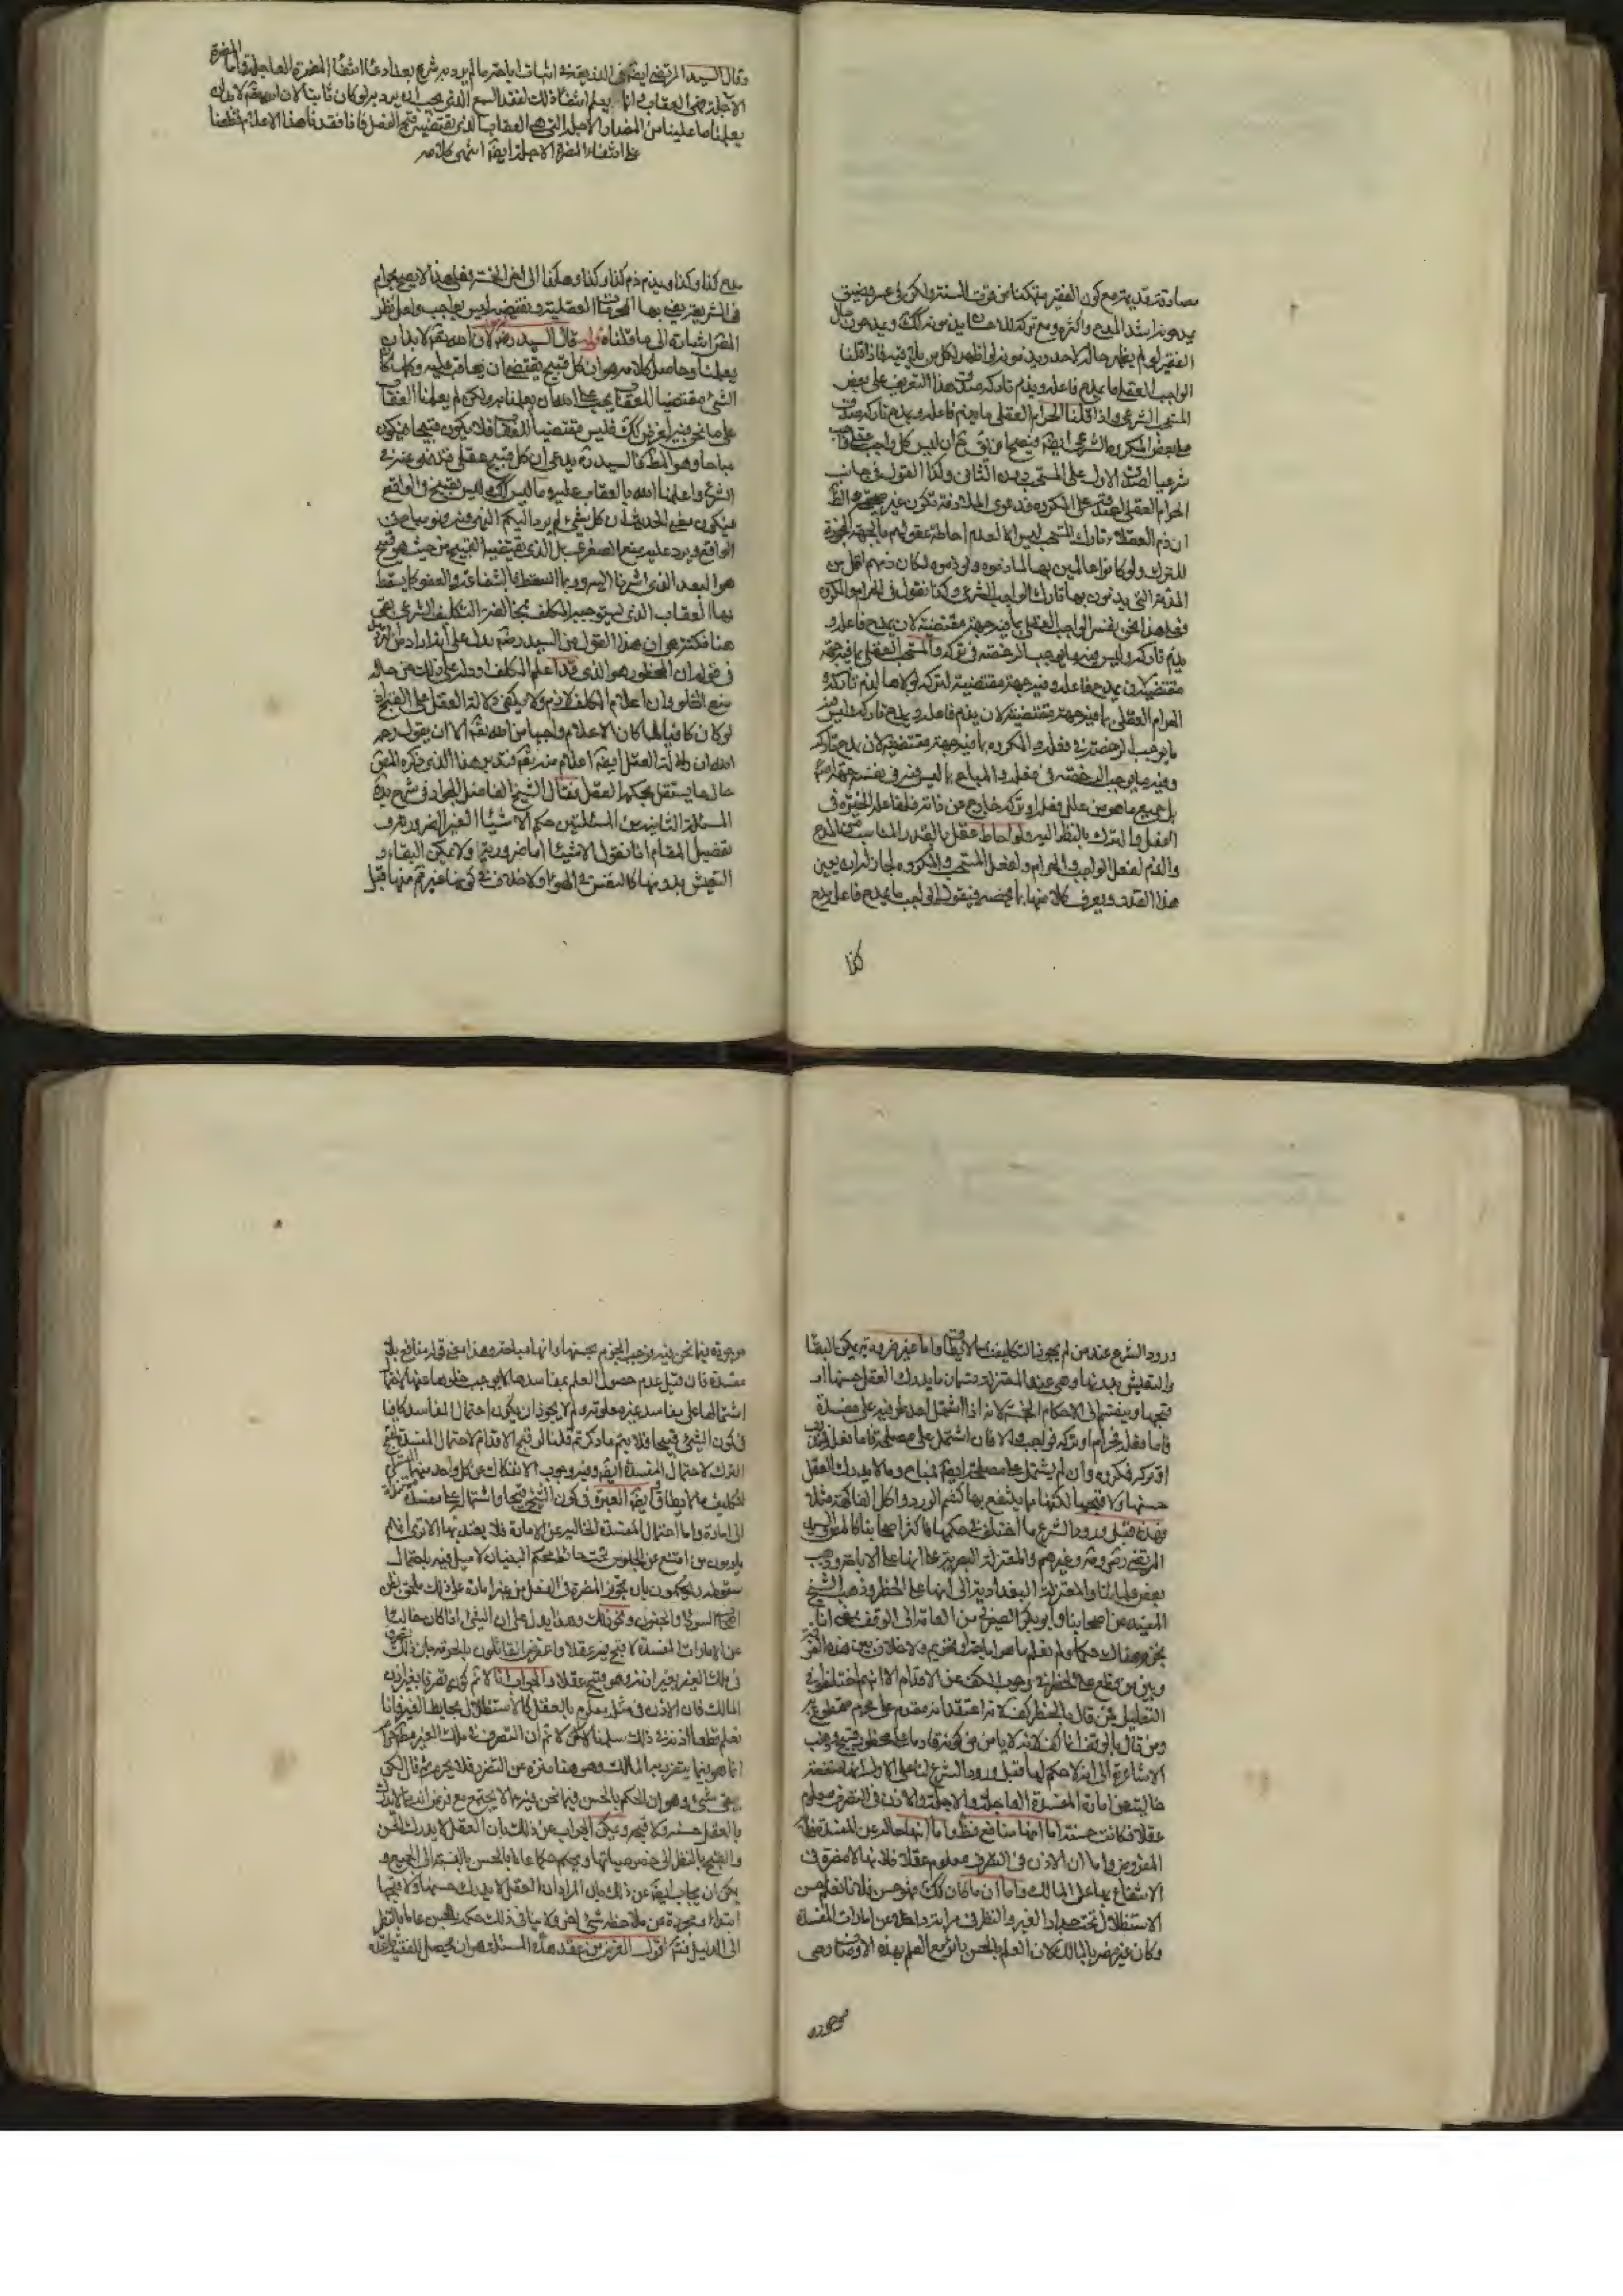 مصادقته قد يتم مع كون الفقير متمكنا من قوت السنة ولكن في عسر وضيق
يمدحونه اشد المدح واكثره ومع تركه لذلك
الفقير لو لم يظهر حاله لاحد ويذمونه لو اظهر لكل من يلقى فاذا قلنا
الواجب العقلي ما يمدح فاعله ويذم تاركه صدق هذا التعريف على بعض
المستحب الشرعي واذا قلنا الحرام العقلي ما يذم فاعله ويمدح تاركه صدق
على بعض المكروه الشرعي ايضا
شرعيا لصدق الاول على المستحب دون الثاني وكذا القول في جانب
الحرام العقلي
ان ذم العقلاء تارك المستحب ليس الا لعدم احاطة عقولهم بالجهة المجوزة
للترك ولو كانوا عالمين بها لما ذموه ولو ذموه لكان ذمهم اقل من
المذمة التي يذمون بها تارك الواجب الشرعي وكذا نقول في الحرام والمكروه
فعلى هذا نحن نفسر الواجب العقلي بما فيه جهة مقتضية لان يمدح فاعله و
يذم تاركه وليس فيه ما يوجب الرخصة في تركه والمستحب العقلي بما فيه جهة
مقتضية لان يمدح فاعله وفيه جهة مقتضية لتركه لولاها لذم تاركه و
الحرام العقلي بما فيه جهة مقتضية لان يذم فاعله ويمدح تاركه وليس فيه
ما يوجب الرخصة في فعله والمكروه بما فيه جهة مقتضية لان يمدح تاركه
وفيه ما يوجب الرخصة في فعله والمباح بما ليس فيه في نفسه جهة
بل جميع ما هو من علل فعله او تركه خارج عن ذاته فلفاعله الخيرة في
الفعل والترك بالنظر اليه ولو احاط عقل بالقدر المناسب من المدح
والذم لفعل الواجب والحرام ولفعل المستحب والمكروه لجاز له ان يعين
هذا القدر ويعرف كلا منها بما يخصه فيقول الواجب ما يمدح فاعله مدح
كذا
وقال السيد المرتضى ايضا في الذريعة في اثبات اباحة ما لم يرد به شرع بعد ادعاء انتفاء المضرة العاجلة فاما المضرة
الآجلة فهي العقاب وانما يعلم انتفاء ذلك لفقد السمع الذي يجب ان يرد به لو كان ثابتا لان الله تعالى لا بد ان
يعلمنا ما علينا من المضار الآجلة التي هي العقاب الذي يقتضيه قبح الفعل فاذا فقدنا هذا الاعلام قطعنا
على انتفاء المضرة الآجلة ايضا انتهى كلامه
مدح كذا وكذا ويذم ذم كذا وكذا وهكذا الى اخر الخمسة فعلى هذا لا يصح حرام
المص اشارة الى ما قلناه قوله قال السيد ره لان الله تعالى لا بد ان
يعلمنا وحاصل كلامه هو ان كل قبيح يقتضي ان يعاقب عليه وكلما كان
الشئ مقتضيا للعقاب يجب على الله ان يعلمنا به ولكن لم يعلمنا العقاب
على ما نحن فيه لفرض ذلك فليس مقتضيا للعقاب فلا يكون قبيحا فيكون
مباحا وهو المط فالسيد ره يدعي ان كل قبيح عقلي فقد نهى عنه في
الشرع واعلمنا الله بالعقاب عليه وما ليس كذلك فليس بقبيح في الواقع
فيكون معنى الحديث ان كل شئ لم يرد اليكم النهي فيه فهو مباح في
الواقع ويرد عليه منع الصغرى بل الذي يقتضيه القبيح من حيث هو قبيح
هو البعد الذي اشرنا اليه وربما اسقط بالشفاعة والعفو كما يسقط
بها العقاب الذي يستوجبه المكلف بمخالفة التكليف الشرعي بقي
هنا نكتة هو ان هذا القول من السيد رضه يدل على
في قوله ان المحظور هو الذي قد اعلم المكلف او دل على ذلك من حاله
منع الخلو وان اعلام المكلف لازم ولا يكفي دلالة العقل على القبح اذ
لو كان كافيا لما كان الاعلام واجبا من الله تعالى الا ان يقول رحمه
الله ان دلالة العقل ايضا اعلام منه تعالى فتدبر هذا الذي ذكره المص
حال ما يستقل بحكمه العقل فقال الشيخ الفاضل الجواد في شرح زبدة
المسئلة الثانية من المسئلتين حكم الاشياء الغير الضرورية وتعرف
تفصيل المقام انا نقول الاشياء اما ضرورية ولا يمكن البقاء و
التعيش بدونها كالتنفس في الهواء ولا خلاف في كونها غير محرمة قبل
ورود الشرع عند من لم يجوز التكليف بما لا يطاق واما غير ضرورية يمكن البقاء
والتعيش بدونها وهي عند المعتزلة قسمان ما يدرك العقل حسنها او
قبحها وينقسم الى الاحكام الخمسة لانه اذا اشتمل احد طرفيه على مفسدة
فاما فعله فحرام او تركه فواجب والا فان اشتمل على مصلحة فاما فعله فمندوب
او تركه فمكروه وان لم يشتمل على مصلحة ايضا فمباح وما لا يدرك العقل
حسنها ولا قبحها لكنها مما ينتفع بها كشم الورد واكل الفاكهة مثلا
فهذه قبل ورود الشرع مما اختلف في حكمها فاكثر اصحابنا كالمحقق والسيد
المرتضى رضي وغيرهم والمعتزلة البصرية على انها على الاباحة وذهب
بعض فقهائنا والمعتزلة البغدادية الى انها على الحظر وذهب الشيخ
المفيد من اصحابنا وابو بكر الصيرفي من العامة الى الوقف بمعنى انا
نجزم هناك حكما ولم نعلم ما هو اباحة او تحريم ولا خلاف بين هذه الفرقة
وبين من قطع على الحظر في وجوب الكف عن الاقدام الا انهم اختلفوا في
التعليل فمن قال بالحظر كف لانه اعتقد انه مقدم على محرم مقطوع به
ومن قال بالوقف انما كف لانه لا يامن من كونه قادما على محظور قبيح وذهب
الاشاعرة الى انه لا حكم لها قبل ورود الشرع لنا على الاول انها منفعة
خالية من امارة المفسدة العاجلة والآجلة والاذن في التصرف معلوم
عقلا فكانت حسنة اما انها منافع فظ واما انها خالية عن المفسدة فلانه
المفروض واما ان الاذن في التصرف معلوم عقلا فلانها لا مضرة في
الانتفاع بها على المالك واما ان ما كان كذلك فهو حسن فلانا نعلم حسن
الاستظلال تحت جدار الغير والنظر في مرآته اذا خلا عن امارات المفسدة
وكان غير مضر بالمالك لان العلم بالحسن يقع مع العلم بهذه الاوصاف وهي
موجوده
موجودة فيما نحن فيه فوجب الجزم بحسنها وانها مباحة وهذا معنى قوله منافع بلا
مفسدة فان قيل عدم حصول العلم بمفاسدها لا يوجب خلوها عنها لجواز
اشتمالها على مفاسد غير معلومة ولم لا يجوز ان يكون احتمال المفاسد كافيا
في كون الشئ قبيحا فلا يتم ما ذكرتم قلنا لو قبح الاقدام لاحتمال المفسدة لقبح
الترك لاحتمال المفسدة ايضا وفيه وجوب الانفكاك عن كل واحد منهما وهو
تكليف بما لا يطاق ايضا العبرة في كون الشئ قبيحا واشتماله على مفسدة مستندة
الى امارة واما احتمال المفسدة الخالية عن الامارة فلا يعتد بها الا ترى انهم
يلومون من امتنع عن الجلوس تحت حائط محكم البنيان لا ميل فيه باحتمال
سقوطه ويحكمون بان تجويز المضرة في الفعل من غير امارة على ذلك ملحق بظن
اصحاب السوداء والجنون ونحو ذلك وهذا يدل على ان الشئ اذا كان خاليا
عن امارات المفسدة لا قبح فيه عقلا واعترض القائلون بالحرمة بان ذلك تصرف
في ملك الغير بغير اذنه وهو قبيح عقلا والجواب انا لا نم كونه تصرفا بغير اذن
المالك فان الاذن في مثله معلوم بالعقل كالاستظلال بحايط الغير فانا
نعلم قطعا اذنه في ذلك سلمنا لكن لا نم ان التصرف في ملك الغير مطلقا حرام
انما هو فيما يتضرر به المالك وهو هنا منزه عن التضرر فلا يحرم ثم قال لكن
بقي شئ وهو ان الحكم بالحسن فيما نحن فيه مما لا يجتمع مع فرض انه مما لا يدرك
بالعقل حسنه ولا قبحه ويمكن الجواب عن ذلك بان العقل لا يدرك الحسن
والقبح بالنظر الى خصوصياتها ويحكم حكما عاما بالحسن بالنسبة الى الجميع و
يمكن ان يجاب ايضا عن ذلك بان المراد ان العقل لا يدرك حسنها ولا قبحها
ابتداء ومجردة عن ملاحظة شئ اخر ولا ينافي ذلك حكمه بالحسن عاما بالنظر
الى الدليل فتم اقول الغرض من عقد هذه المسئلة هو ان يحصل للفقيه